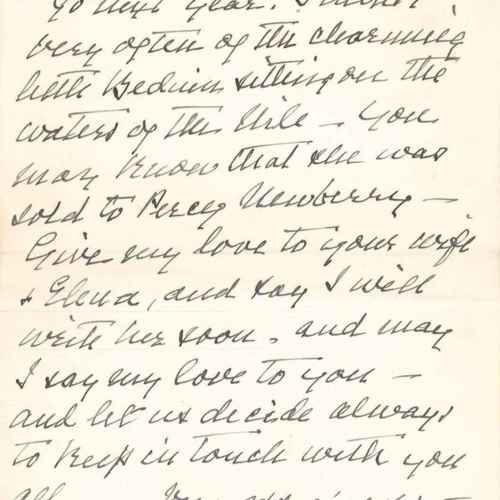 go next year. I think
very often of the charming
little Bedouin sitting on the
waters of the Nile – You
may know that she was
sold to Percy Newberry –
Give my love to your wife
& Elena, and say I will
write her soon. and may
I say my love to you –
and let us decide always
to keep in touch with you
all